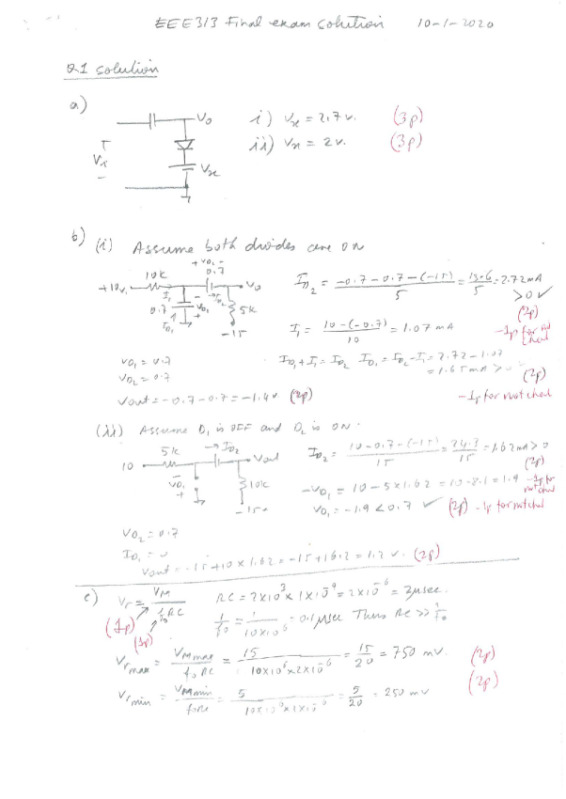 EEE313 Final exam solution 10-1-2020
Q1 solution
a)
Vo
Vi
Vx
i) Vx = 2.7 v. (3p)
ii) Vx = 2 v. (3p)
b) (i) Assume both diodes are on
+ VD2 -
0.7
+10v 10k Vo
0.7 VD1 5k
-15
ID2 = (-0.7-0.7-(-15))/5 = 13.6/5 = 2.72mA
>0 ✓
(2p)
I1 = (10-(-0.7))/10 = 1.07 mA
-1p for not
VD1 = 0.7
ID1 + I1 = ID2 ID1 = ID2 - I1 = 2.72 - 1.07
= 1.65 mA > 0
VD2 = 0.7
(2p)
Vout = -0.7-0.7 = -1.4v (2p)
-1p for not
(ii) Assume D1 is OFF and D2 is ON.
5k ID2
10 Vout
VD1 10k
-15v
ID2 = (10-0.7-(-15))/15 = 24.3/15 = 1.62mA > 0
(2p)
-VD1 = 10 - 5x1.62 = 10-8.1 = 1.9 -1p for
VD1 = -1.9 < 0.7 ✓ (2p) -1p for
VD2 = 0.7
ID1 = 0
Vout = -15+10x1.62 = -15+16.2 = 1.2 v. (2p)
c) Vr = VM/(f0RC)
RC = 2x10^3 x 1x10^-9 = 2x10^-6 = 2μsec.
(1p)
(1p)
1/f0 = 1/(10x10^6) = 0.1μsec Thus RC >> 1/f0
Vr max = VMmax/(f0RC) = 15/(10x10^6x2x10^-6) = 15/20 = 750 mV. (2p)
Vr min = VMmin/(f0RC) = 5/(10x10^6x2x10^-6) = 5/20 = 250 mV (2p)